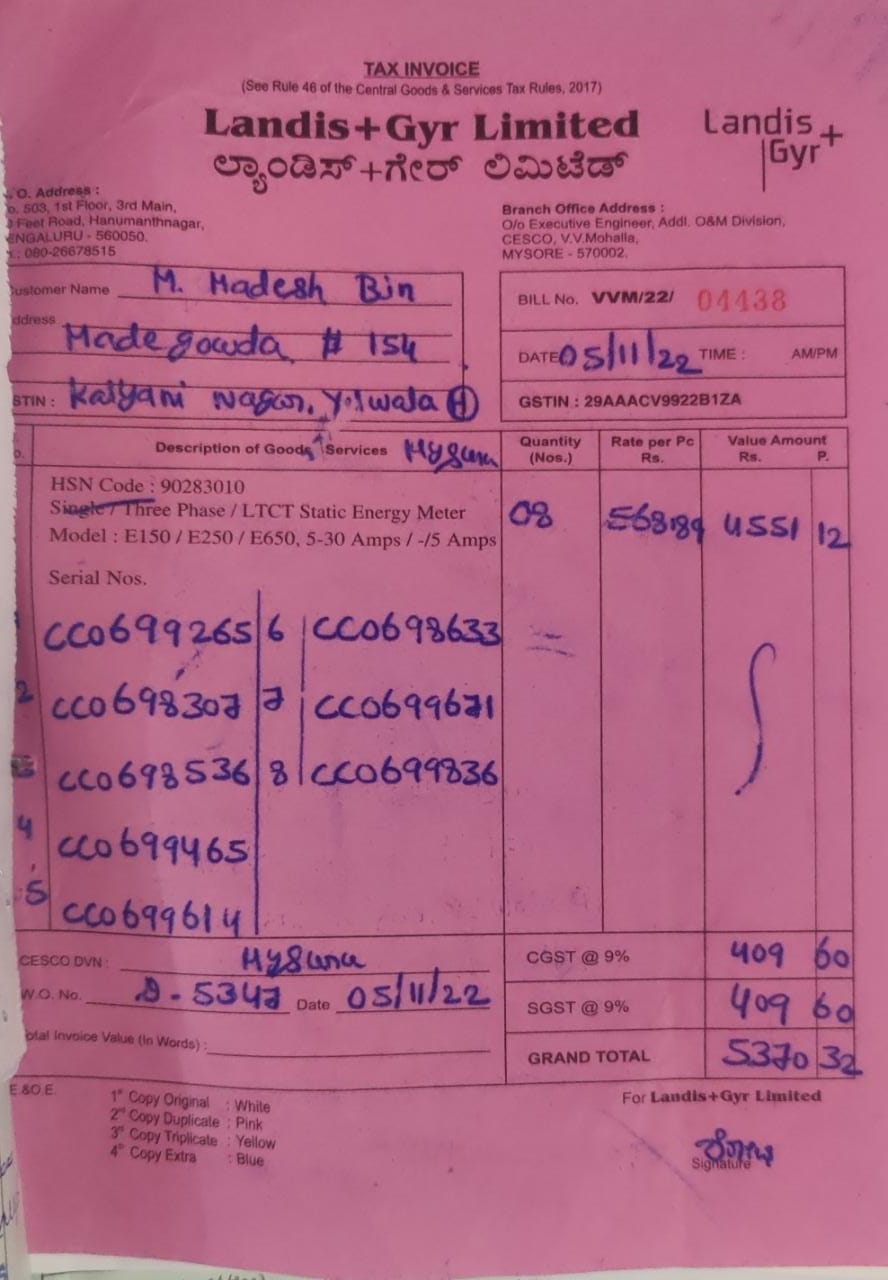 TAX INVOICE
(See Rule 46 of the Central Goods & Services Tax Rules, 2017)
Landis+Gyr Limited
ಲ್ಯಾಂಡಿಸ್+ಗೇರ್ ಲಿಮಿಟೆಡ್
Landis
Gyr+
O. Address :
503, 1st Floor, 3rd Main,
Feet Road, Hanumanthnagar,
ENGALURU - 560050.
: 080-26678515
Branch Office Address :
O/o Executive Engineer, Addl. O&M Division,
CESCO, V.V.Mohalla,
MYSORE - 570002.
ustomer Name M. Madesh Bin
ddress Made gowda # 154
STIN : Kalyani Nagar, Yelwala (H)
Mysuru
BILL No. VVM/22/ 04438
DATE 05/11/22 TIME : AM/PM
GSTIN : 29AAACV9922B1ZA
Description of Goods / Services
Quantity (Nos.)
Rate per Pc Rs.
Value Amount Rs. P.
HSN Code : 90283010
Single / Three Phase / LTCT Static Energy Meter
Model : E150 / E250 / E650, 5-30 Amps / -/5 Amps
08 568.89 4551 12
Serial Nos.
CC0699265 6 CC0698633
2 CC0698307 7 CC0699671
CC0698536 8 CC0699836
4 CC0699465
5 CC0699614
CESCO DVN : Mysuru
W.O. No. D-5347 Date 05/11/22
otal Invoice Value (In Words) :
CGST @ 9% 409 60
SGST @ 9% 409 60
GRAND TOTAL 5370 32
E.&O.E.
1st Copy Original : White
2nd Copy Duplicate : Pink
3rd Copy Triplicate : Yellow
4th Copy Extra : Blue
For Landis+Gyr Limited
Signature